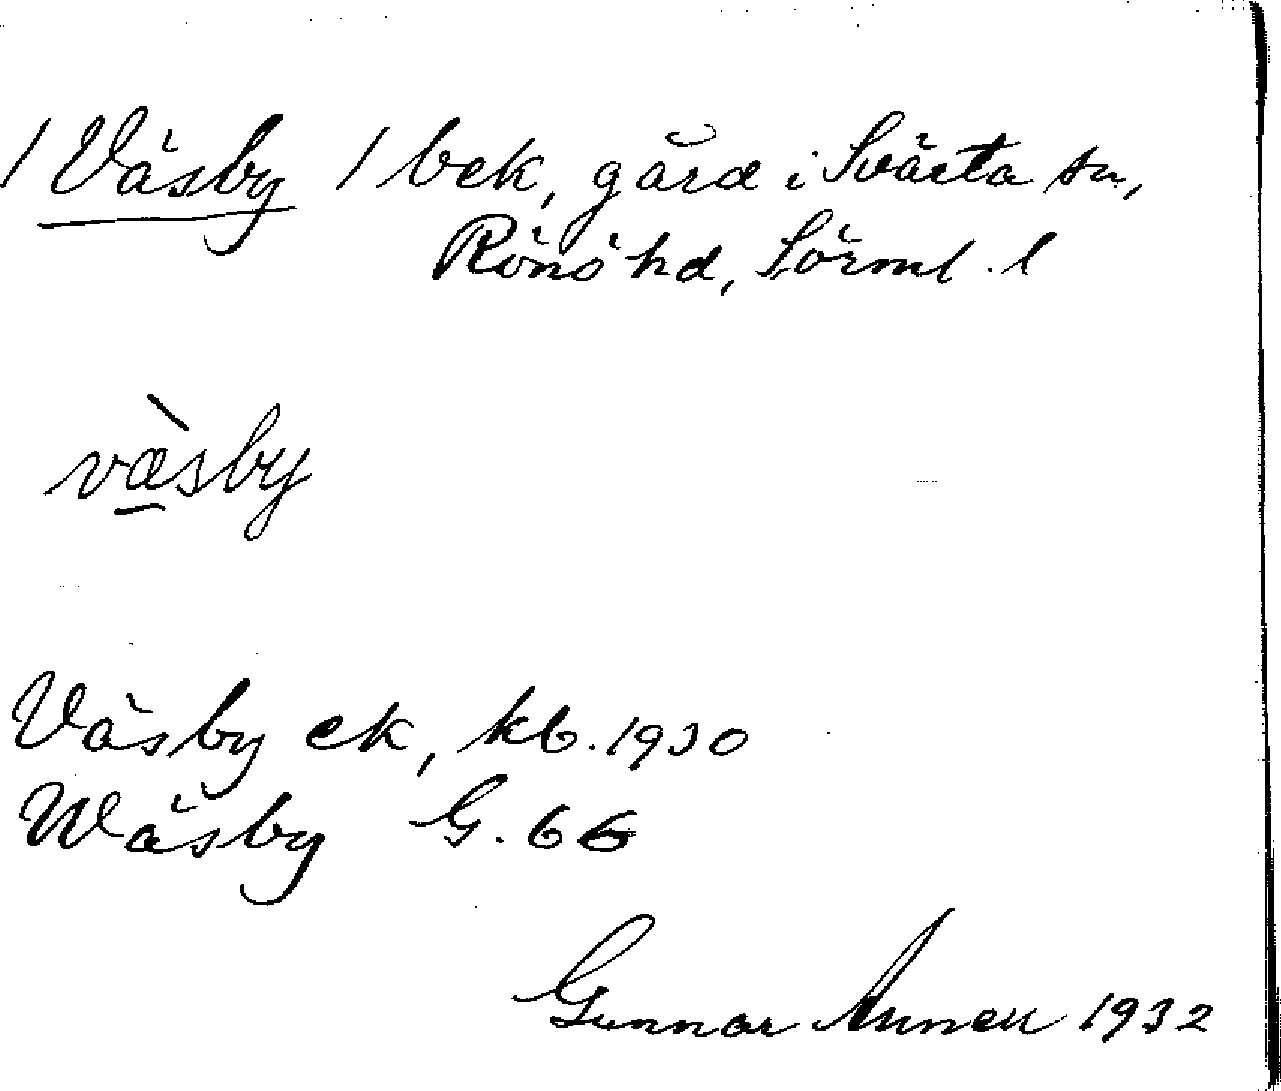 / Väsby / bek, gård i Svärta sn,
Rönö hd, Sörml. l
væ̀sby
Väsby ek, kb. 1930
Wäsby G. 66
Gunnar Annell 1932